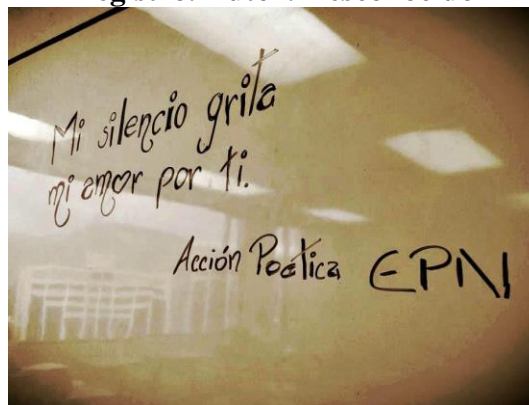 Mi silencio grita
mi amor por ti.
Acción Poética EPN